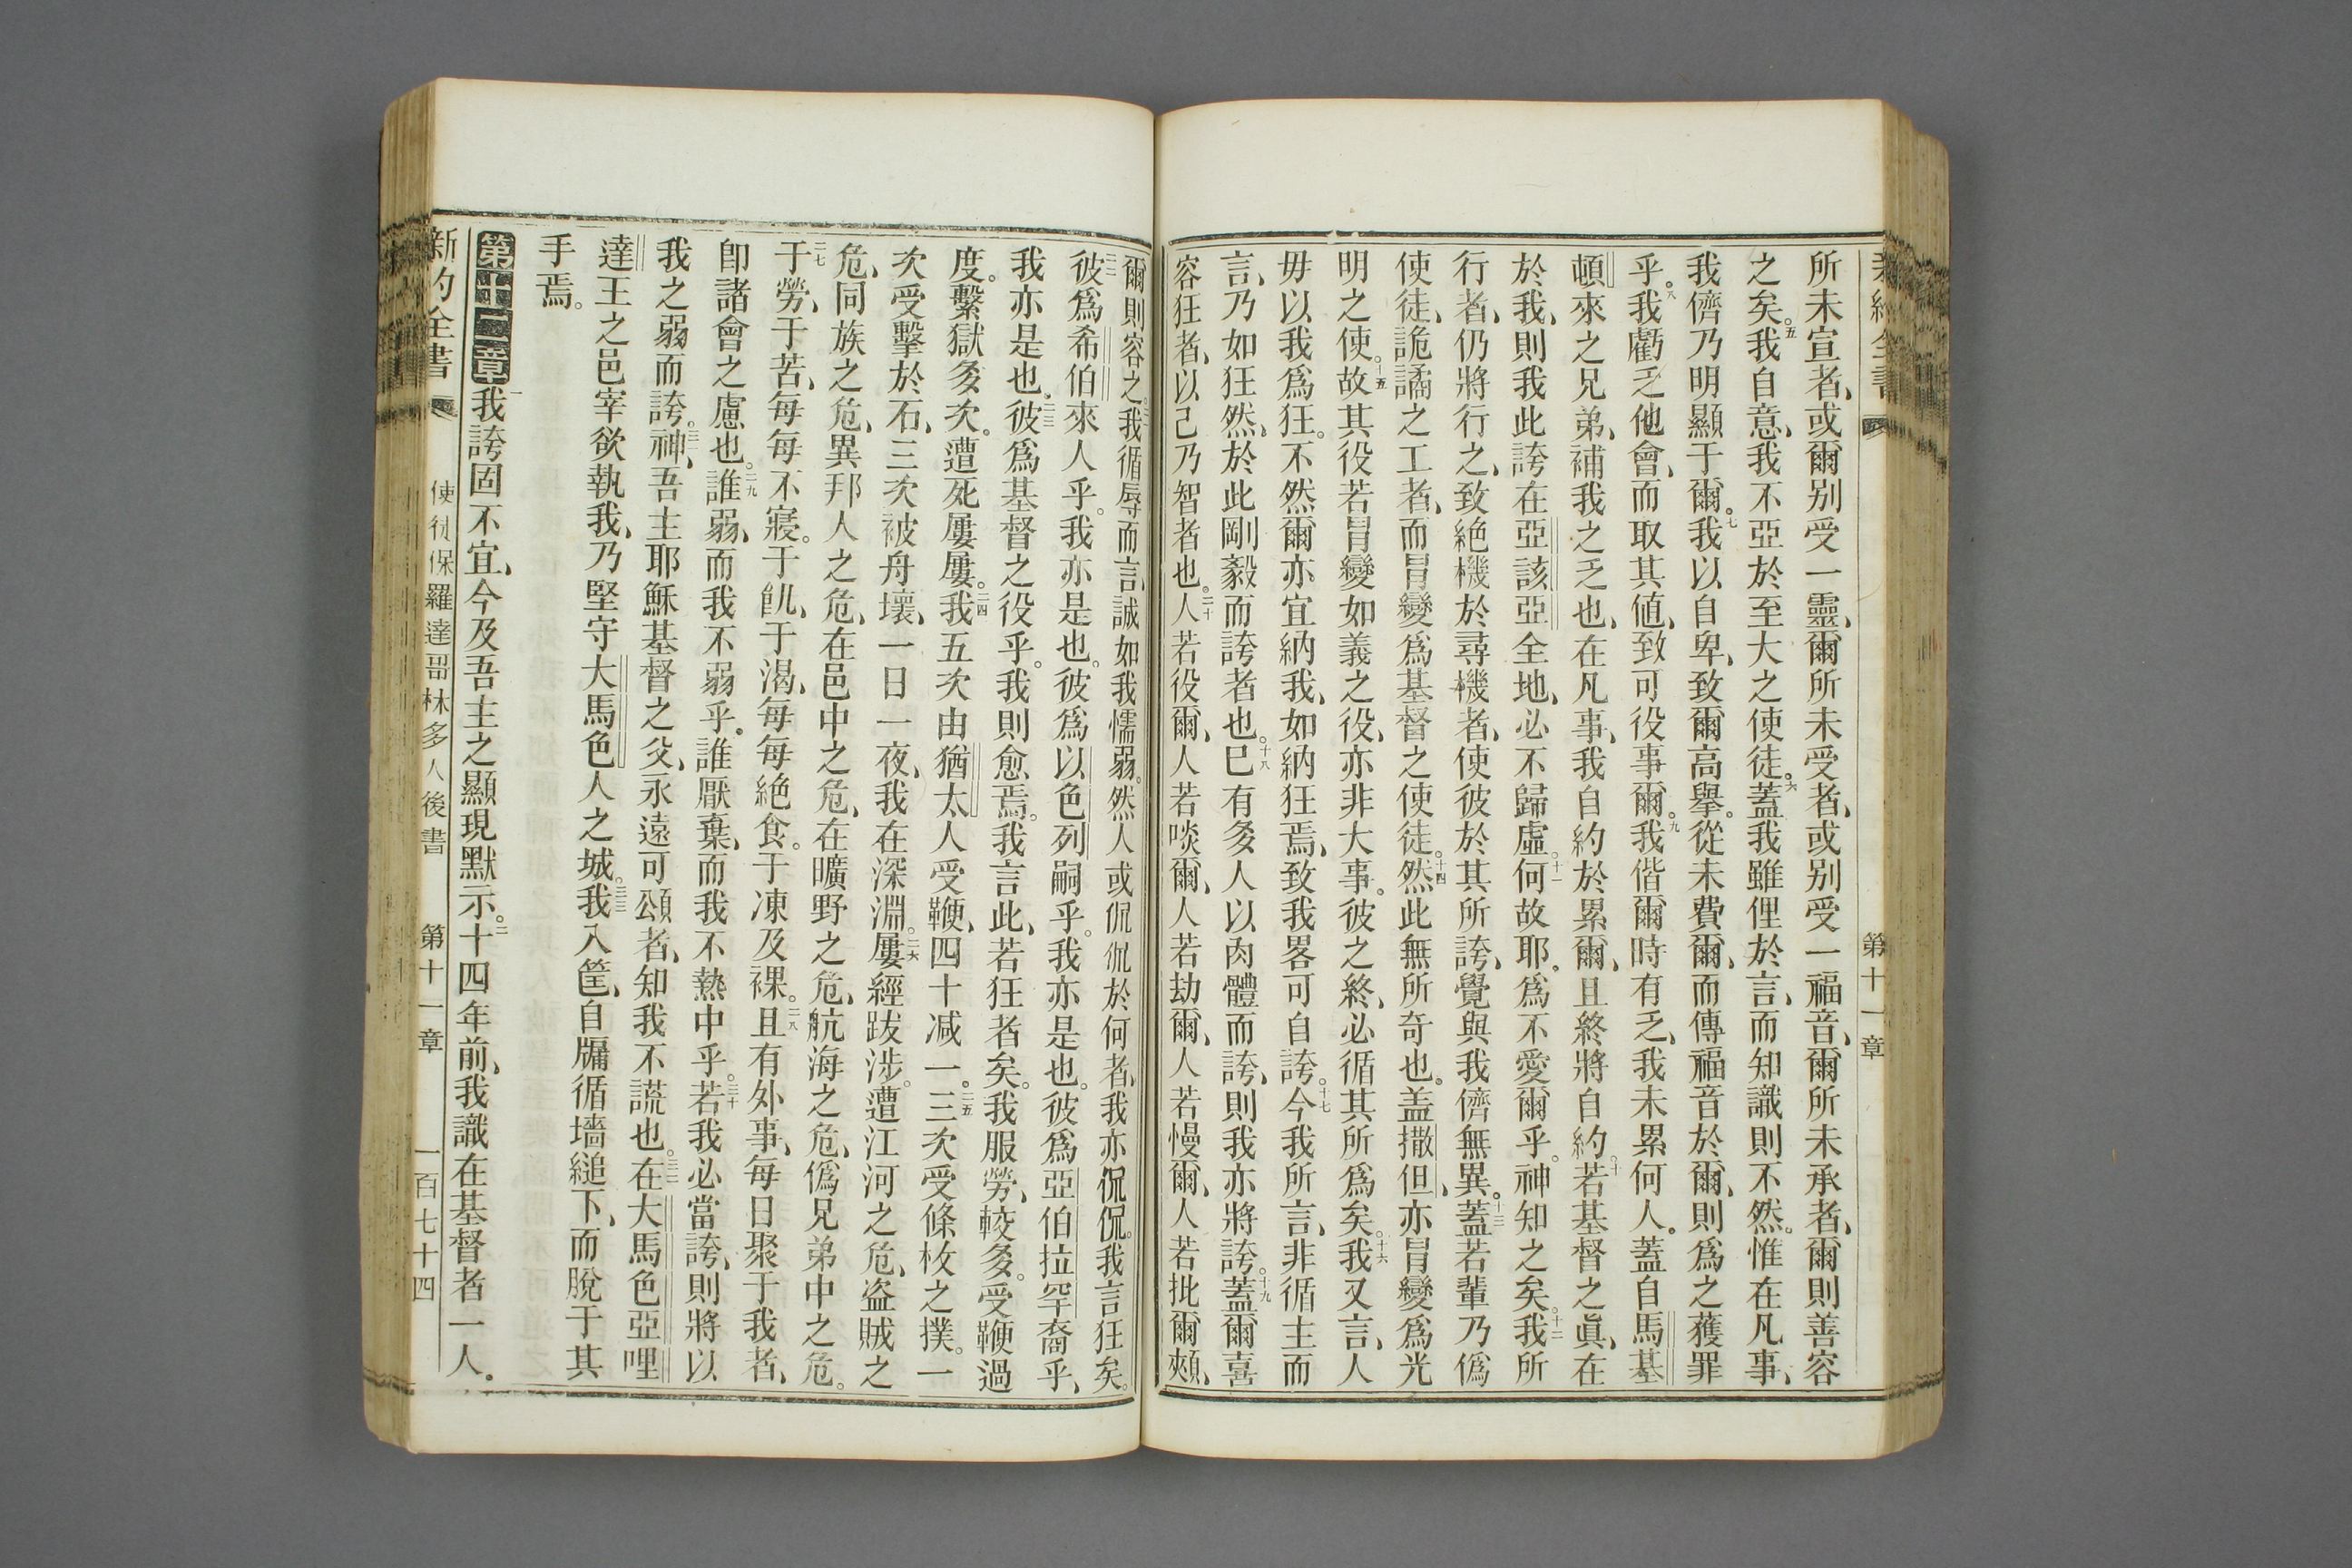 第十一章
所未宣者、或爾别受一靈、爾所未受者、或别受一福音、爾所未承者、爾則善容
之矣。五我自意、我不亞於至大之使徒。六蓋我雖俚於言、而知識則不然。惟在凡事、
我儕乃明顯于爾。七我以自卑、致爾高舉。從未費爾、而傳福音於爾、則爲之獲罪
乎。八我虧乏他會、而取其値、致可役事爾。九我偕爾時有乏、我未累何人。蓋自馬基
頓來之兄弟、補我之乏也、在凡事、我自約於累爾、且終將自約。十若基督之眞、在
於我、則我此誇在亞該亞全地、必不歸虛。十一何故耶。爲不愛爾乎。神知之矣。十二我所
行者、仍將行之、致絶機於尋機者、使彼於其所誇、覺與我儕無異。十三蓋若輩乃僞
使徒、詭譎之工者、而冒變爲基督之使徒。十四然此無所奇也。盖撒但、亦冒變爲光
明之使。十五故其役若冒變如義之役、亦非大事。彼之終、必循其所爲矣。十六我又言、人
毋以我爲狂。不然爾亦宜納我、如納狂焉、致我畧可自誇。十七今我所言、非循主而
言、乃如狂然、於此剛毅而誇者也。十八巳有多人以肉體而誇、則我亦將誇。十九蓋爾喜
容狂者、以己乃智者也。二十人若役爾、人若啖爾、人若劫爾、人若慢爾、人若批爾頰、
爾則容之。二一我循辱而言、誠如我懦弱。然人或侃侃於何者、我亦侃侃。我言狂矣。
二二彼爲希伯來人乎。我亦是也。彼爲以色列嗣乎。我亦是也。彼爲亞伯拉罕裔乎、
我亦是也。二三彼爲基督之役乎。我則愈焉。我言此、若狂者矣。我服勞、較多。受鞭過
度。繫獄多次。遭死屢屢。二四我五次由猶太人受鞭、四十減一。二五三次受條杖之撲。一
次受擊於石、三次被舟壞、一日一夜、我在深淵。二六屢經跋涉。遭江河之危、盜賊之
危、同族之危、異邦人之危、在邑中之危、在曠野之危、航海之危、僞兄弟中之危。
二七于勞、于苦、每每不寢。于飢、于渴、每每絶食。于凍及裸。二八且有外事、每日聚于我者、
卽諸會之慮也。二九誰弱、而我不弱乎。誰厭棄、而我不熱中乎。三十若我必當誇、則將以
我之弱而誇。三一神、吾主耶穌基督之父、永遠可頌者、知我不謊也。三二在大馬色亞哩
達王之邑宰欲執我、乃堅守大馬色人之城。三三我入筐、自牖循墻縋下、而脫于其
手焉。
第十二章一我誇固不宜、今及吾主之顯現默示。二十四年前、我識在基督者一人。
新約全書 使徒保羅達哥林多人後書 第十一章 一百七十四